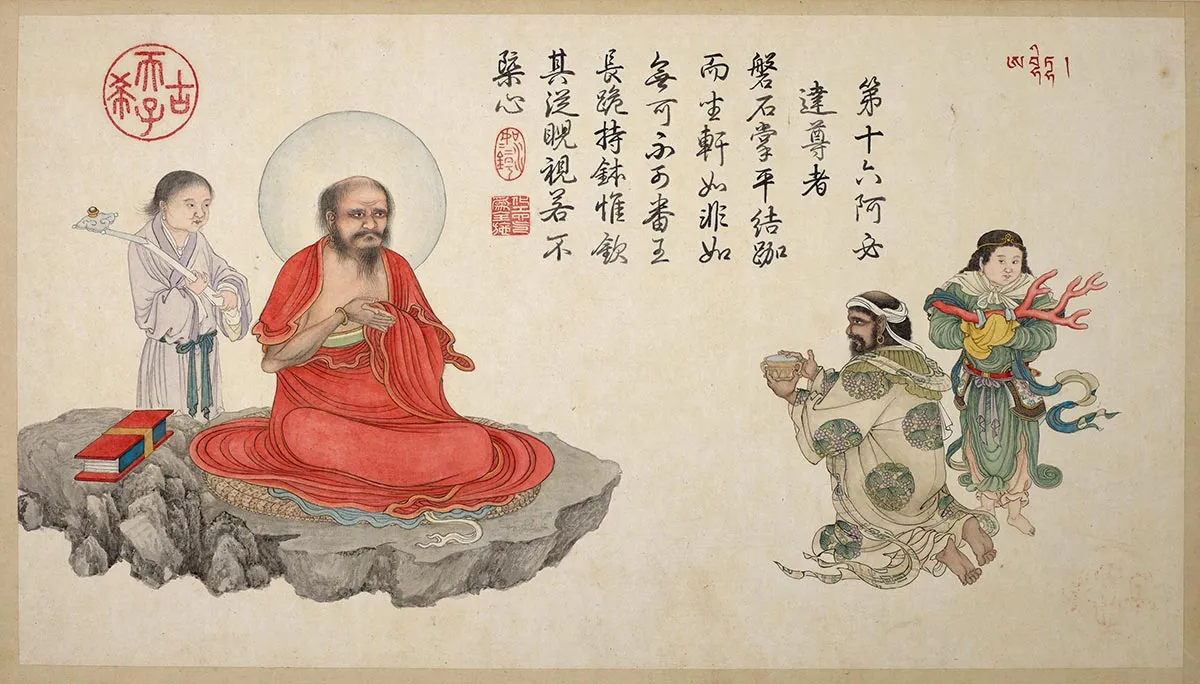 第十六阿必
達尊者
磐石掌平結跏
而坐軒如非如
無可不可番王
長跪持鉢惟欽
其從睨視若不
槩心
古希天子